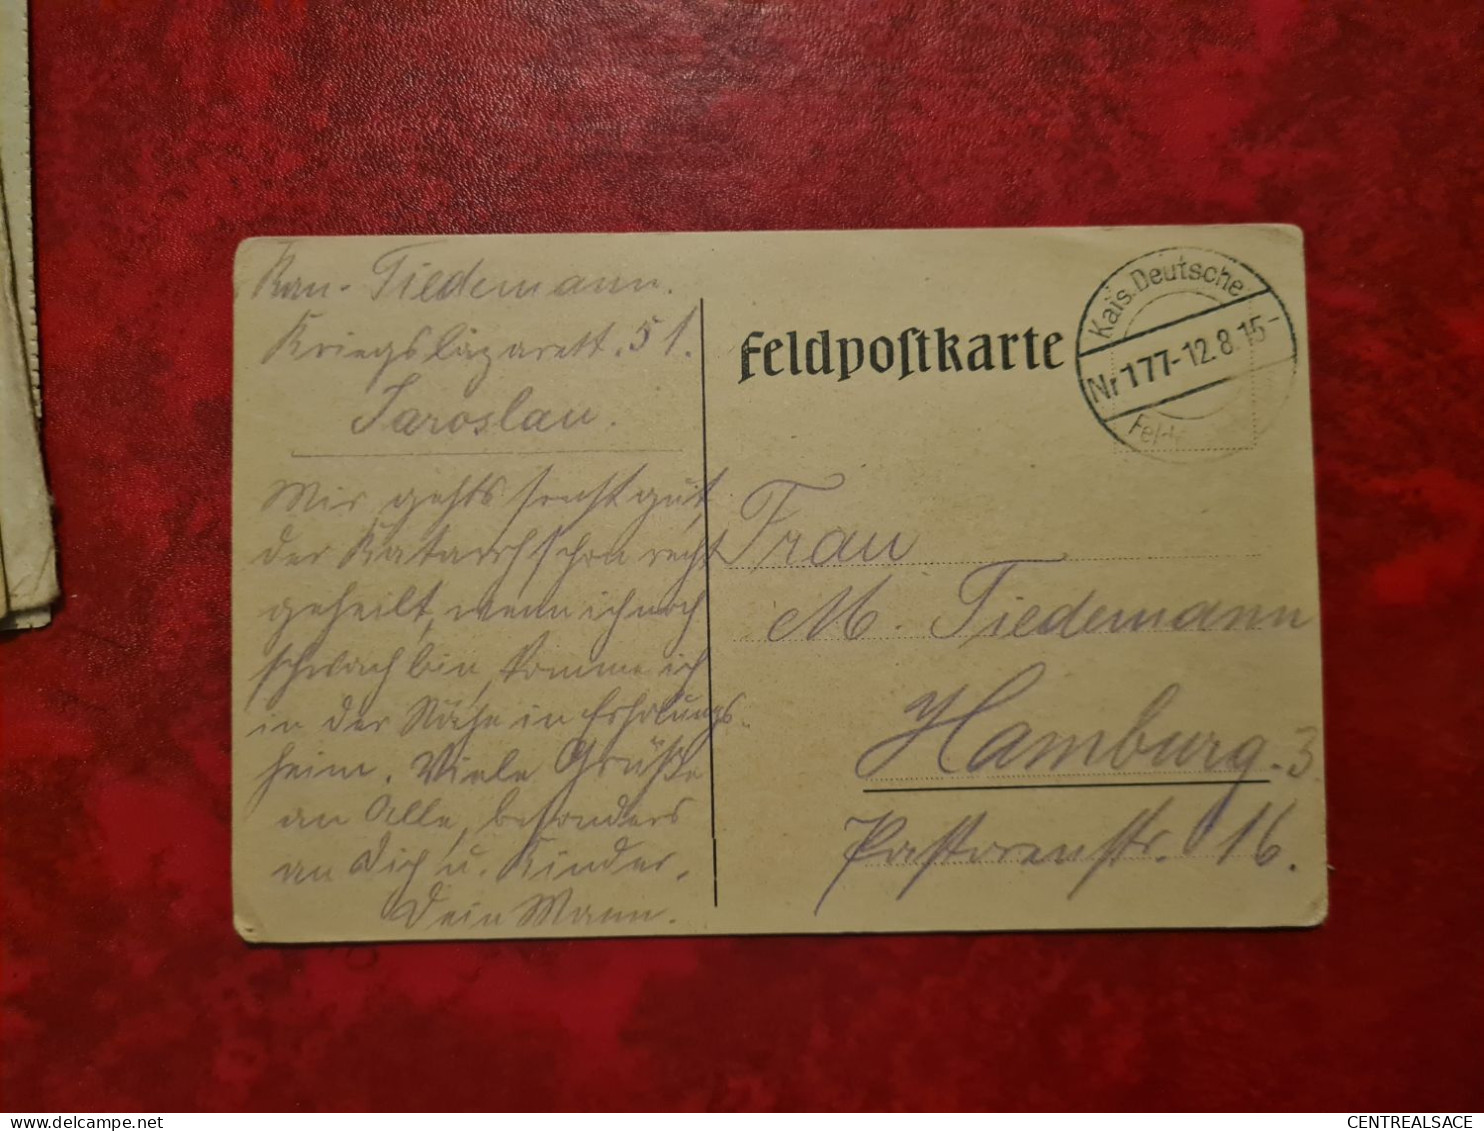 Kan. Tiedemann.
Kriegslazarett. 51.
Jaroslau.
Mir gehts sonst gut,
der Katarrh schon recht
geheilt, wenn ich noch
schwach bin, komme ich
in der Nähe in Erholungs-
heim. Viele Grüße
an Alle, besonders
an Dich u. Kinder.
Dein Mann.
Feldpostkarte
Kais. Deutsche
Nr 177-12.8.15
Frau
M. Tiedemann
Hamburg-3
Pastorenstr. 16.
CENTREALSACE